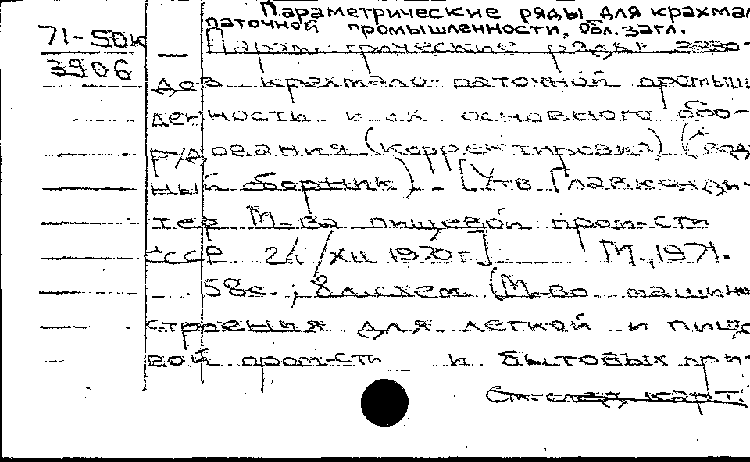 Параметрические ряды для крахмал
паточной промышленности, Обл. загл.
71-50к
3906
Параметрические ряды заво-
дов крахмало-паточной промыш
ленности и их основного обо-
рудования (корректировка) (
ный сборник). [Утв Главконди-
тер М-ва пищевой пром-сти
СССР 24/XII 1970г.] М., 1971.
58с.; 8л.схем (М-во машино
строения для легкой и пище
вой пром-сти и бытовых при-
См. след. карт.